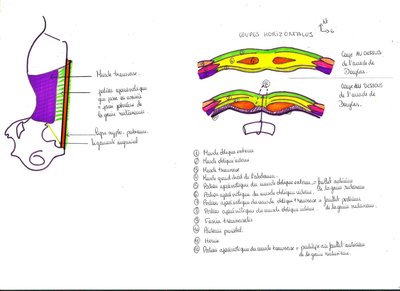 COUPES HORIZONTALES
Muscle transverse.
portion aponévrotique
qui passe en arrière
de la gaine
Ligne
Ligament inguinal
Coupe AU DESSUS
de l'arcade de
Douglas.
Coupe AU DESSOUS
de l'arcade de
Douglas.
① Muscle oblique externe
② Muscle oblique interne
③ Muscle transverse
④ Muscle grand droit de l'abdomen.
⑤ Portion aponévrotique du muscle oblique externe = feuillet antérieur de la gaine
⑥ Portion aponévrotique du muscle oblique interne.
⑦ Portion aponévrotique du muscle transverse = feuillet postérieur de la gaine
⑧ Portion aponévrotique du muscle oblique interne
⑨ Fascia transversalis
⑩ Péritoine pariétal.
⑪ Hernie
⑫ Portion aponévrotique du muscle transverse = participe au feuillet antérieur
de la gaine